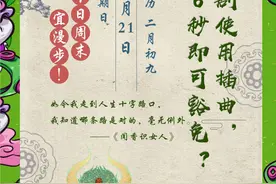 使用插曲，
秒即可豁免？
历 二月初九
月21日
期日
日周末
宜漫步！
如今我走到人生十字路口，
我知道哪条路是对的，毫无例外
——《闻香识女人》